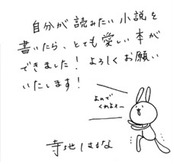 自分が読みたい小説を
書いたら、とても愛しい本が
できました！よろしくお願い
いたします！
よんで
くれよなー
寺地はるな